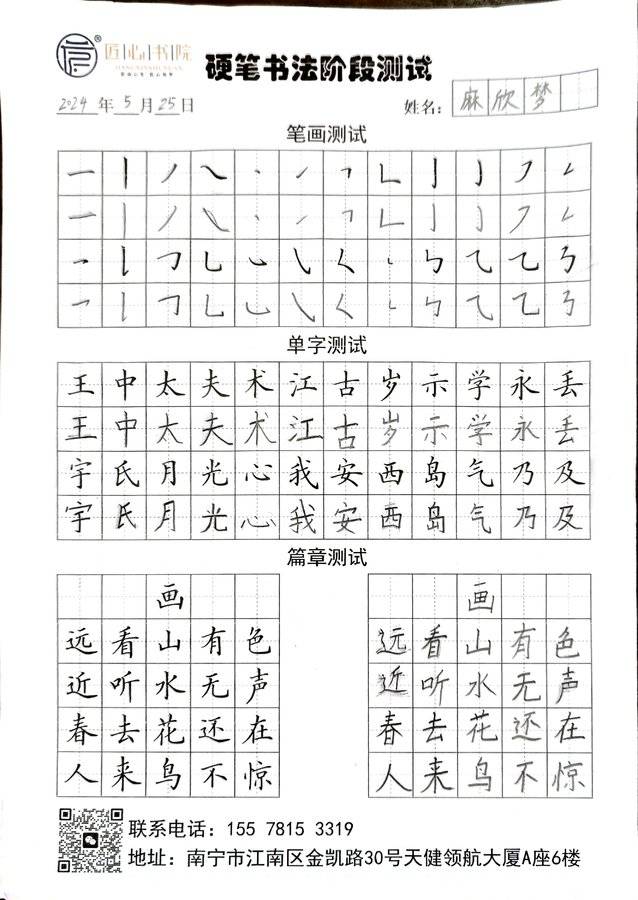 匠心书院
硬笔书法阶段测试
2024年5月25日
姓名：麻欣梦
笔画测试
单字测试
王中太夫术江古岁示学永丢
王中太夫术江古岁示学永丢
宇氏月光心我安西岛气乃及
宇氏月光心我安西岛气乃及
篇章测试
画
远看山有色
近听水无声
春去花还在
人来鸟不惊
画
远看山有色
近听水无声
春去花还在
人来鸟不惊
联系电话：155 7815 3319
地址：南宁市江南区金凯路30号天健领航大厦A座6楼